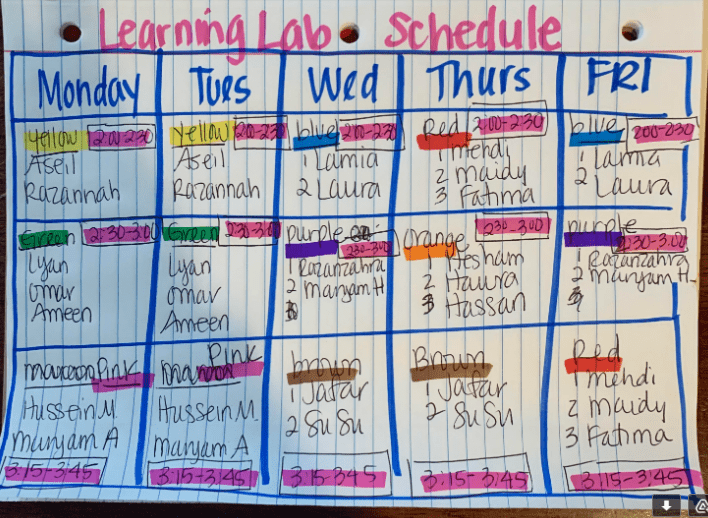 Learning Lab Schedule
Monday Tues Wed Thurs FRI
Yellow 2:00-2:30
Aseil
Razannah
Yellow 2:00-2:30
Aseil
Razannah
blue 2:00-2:30
1 Lamia
2 Laura
Red 2:00-2:30
1 mehdi
2 maidy
3 Fatima
blue 2:00-2:30
1 Lamia
2 Laura
Green 2:30-3:00
Lyan
Omar
Ameen
Green 2:30-3:00
Lyan
Omar
Ameen
purple
2:30-3:00
1 Razanzahra
2 maryam H
orange 2:30-3:00
1 Hesham
2 Haura
3 Hassan
purple
2:30-3:00
1 Razanzahra
2 maryam H.
maroon Pink
Hussein M.
maryam A
3:15-3:45
Pink
maroon
Hussein M.
maryam A
3:15-3:45
brown
1 Jafar
2 SuSu
3:15-3:45
Brown
1 Jafar
2 SuSu
3:15-3:45
Red
1 mehdi
2 maidy
3 Fatima
3:15-3:45